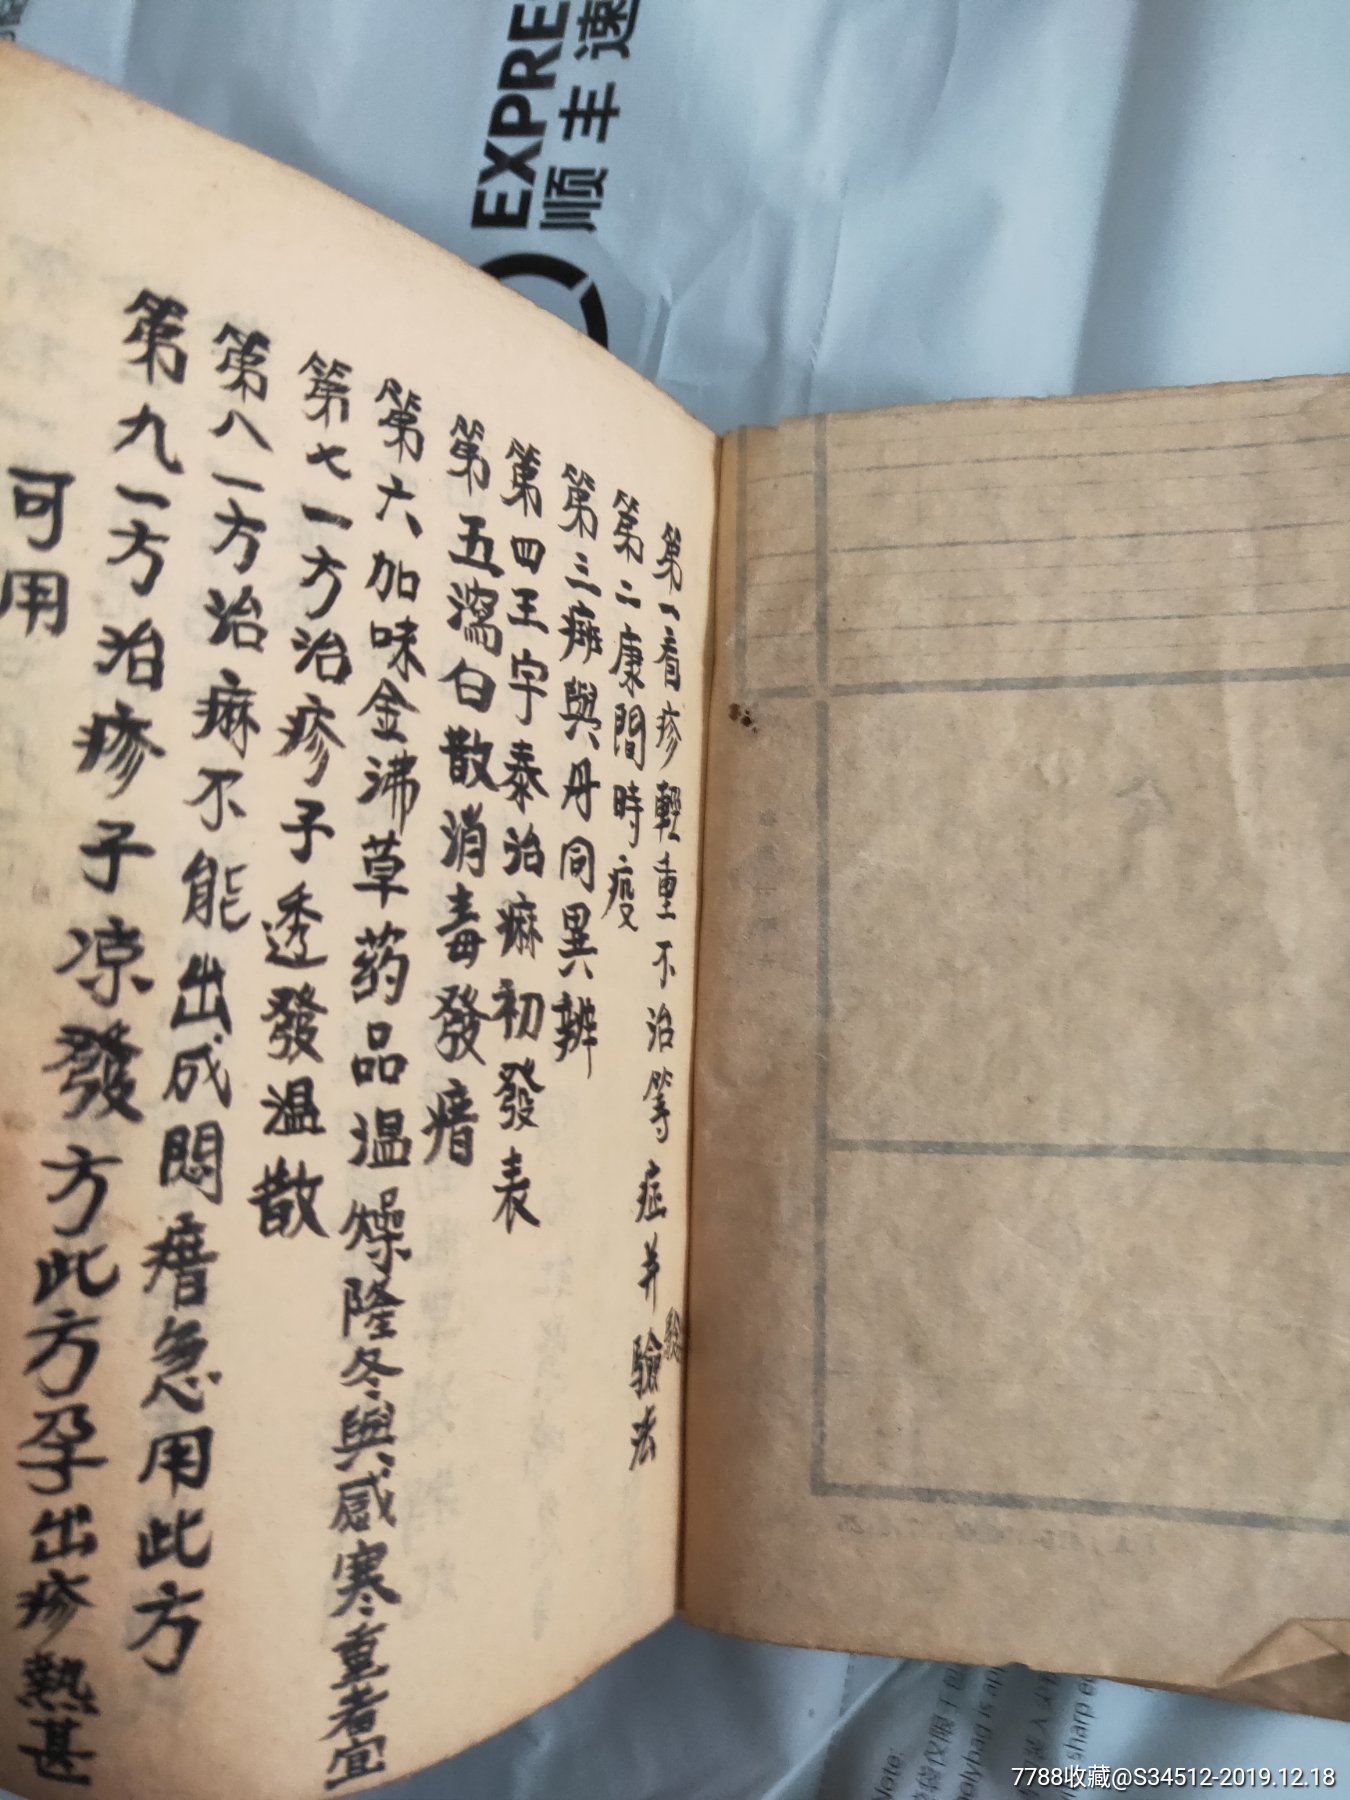 EXPRE
顺丰速
第一看疹輕重不治等症并驗法
第二康間時疫
第三痳與丹同異辨
第四王字泰治痳初發表
第五瀉白散消毒發瘄
第六加味金沸草药品温燥隆冬與感寒重者宜
第七一方治疹子透發温散
第八一方治痳不能出成悶瘄急用此方
第九一方治疹子凉發方此方孕出疹熱甚
可用
Note:
7788收藏@S34512-2019.12.18